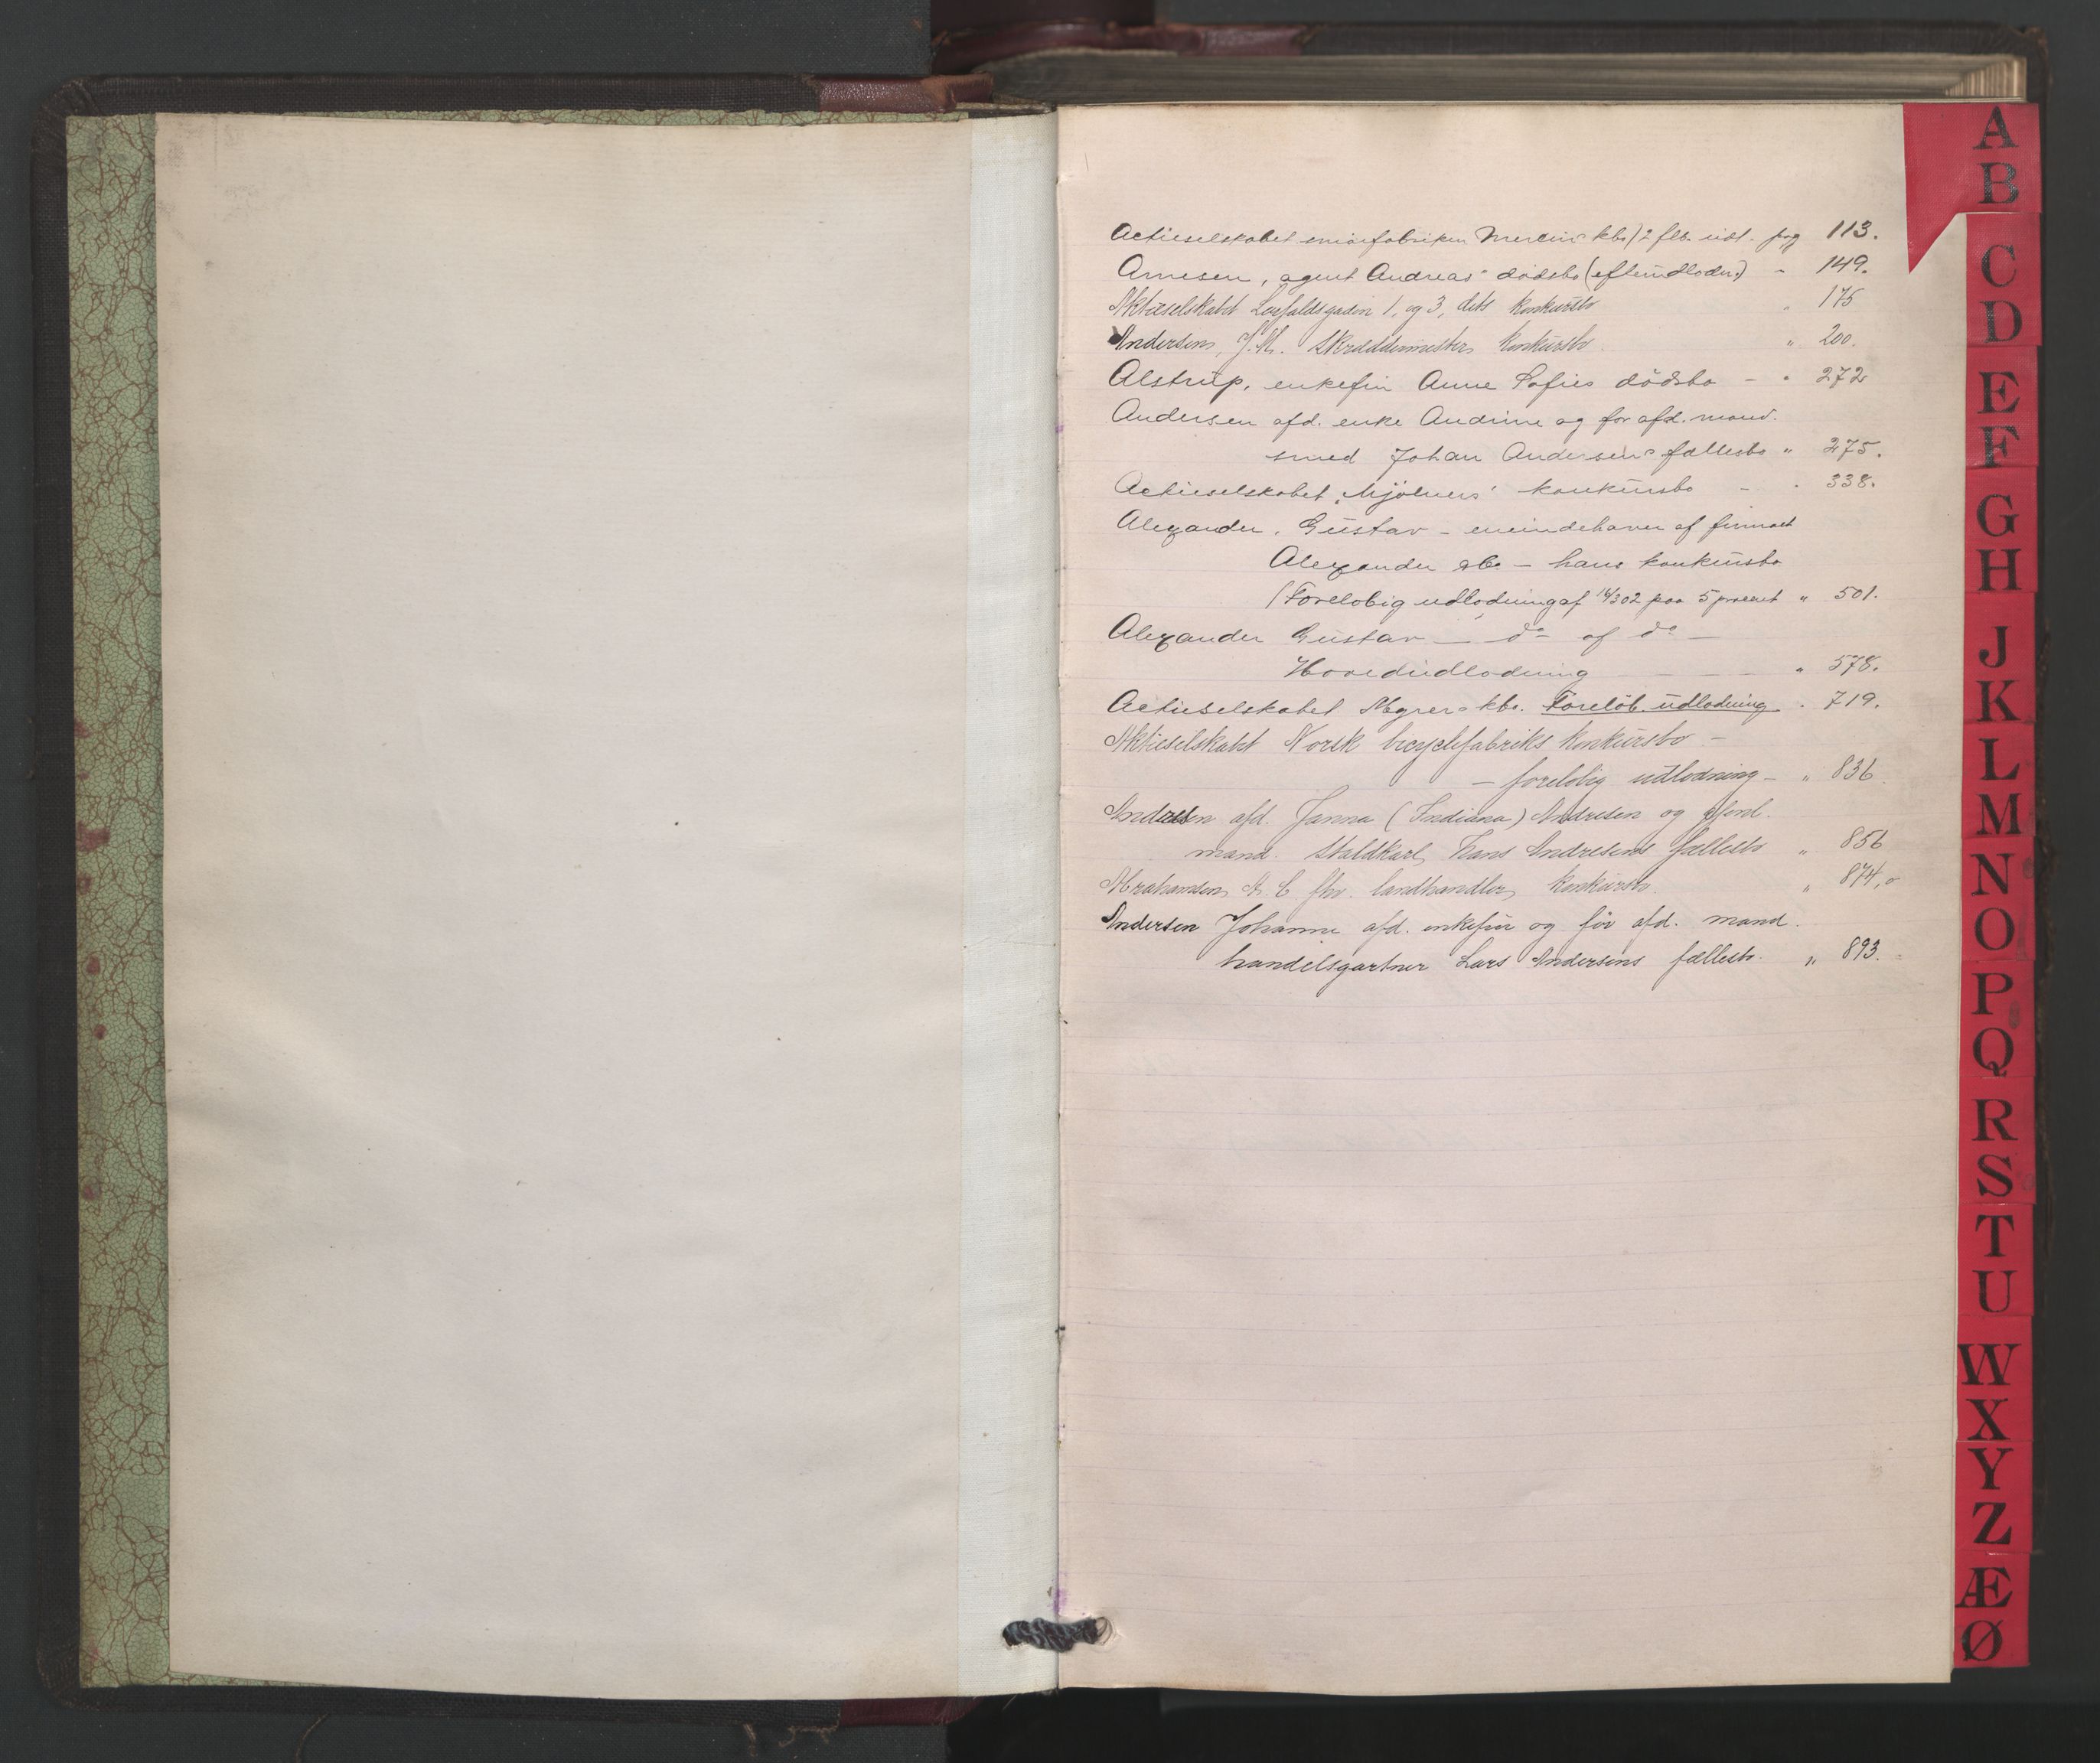 Actieselskabet smörfabriken Mercurs kbo / 2 flb. udl. pag 113.
Arnesen, agent Andreas' dødsbo (efterudlodn.) - 149.
Aktieselskabet Løvfaldsgaden 1, og 3, dets konkursbo " 175
Andersens, J. M. Skræddermesters konkursbo " 200.
Alstrup, enkefru Anne Sofies dödsbo - " 272
Andersen afd. enke Andrine og før afd. mand.
smed Johan Andersens fællesbo " 275.
Actieselskabet "Mjölners" konkursbo - " 338.
Alexander, Gustav - eneindehaver af firmaet
Alexander & Co - hans konkursbo
(Forelobig udlodning af 16/3 02 paa 5 procent " 501.
Alexander Gustav - do af do -
Hovedudlodning " 578.
Actieselskabet Ægirs kbo. Foreløb. udlodning " 719.
Aktieselskabet Norsk bicyclefabriks konkursbo -
- foreløbig udlodning - " 836
Andresen afd. Janna (Indiana) Andresen og forud.
mand. Staldkarl Hans Andresens fællesbo " 856
Abrahamsen, A. C. fhv. landhandlers konkursbo. " 874,
Andersen Johanne afd. enkefru og før afd. mand.
handelsgartner Lars Andersens fællesbo " 893.
A
B
C
D
E
F
G
H
J
K
L
M
N
O
P
Q
R
S
T
U
W
X
Y
Z
Æ
Ø